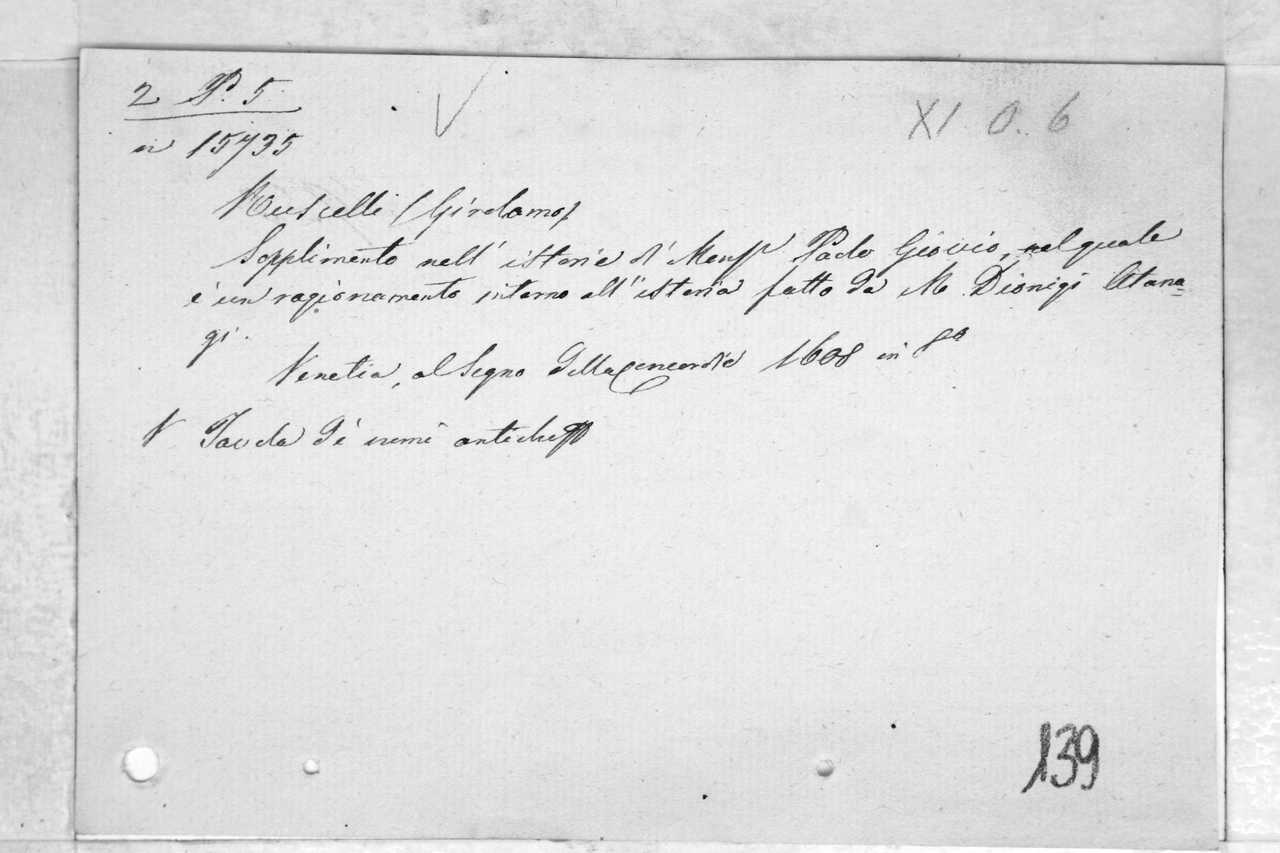 2 P. 5
XI O. 6
in 15735
Ruscelli (Girolamo)
Sopplimento nell' istorie di Monsr Paolo Giovio, nel quale
è un ragionamento intorno all' istoria fatto da M. Dionigi Atana=
gi.
Venetia, al Segno della Concordia 1608 in 8º
V Tavola di nomi antichi
139